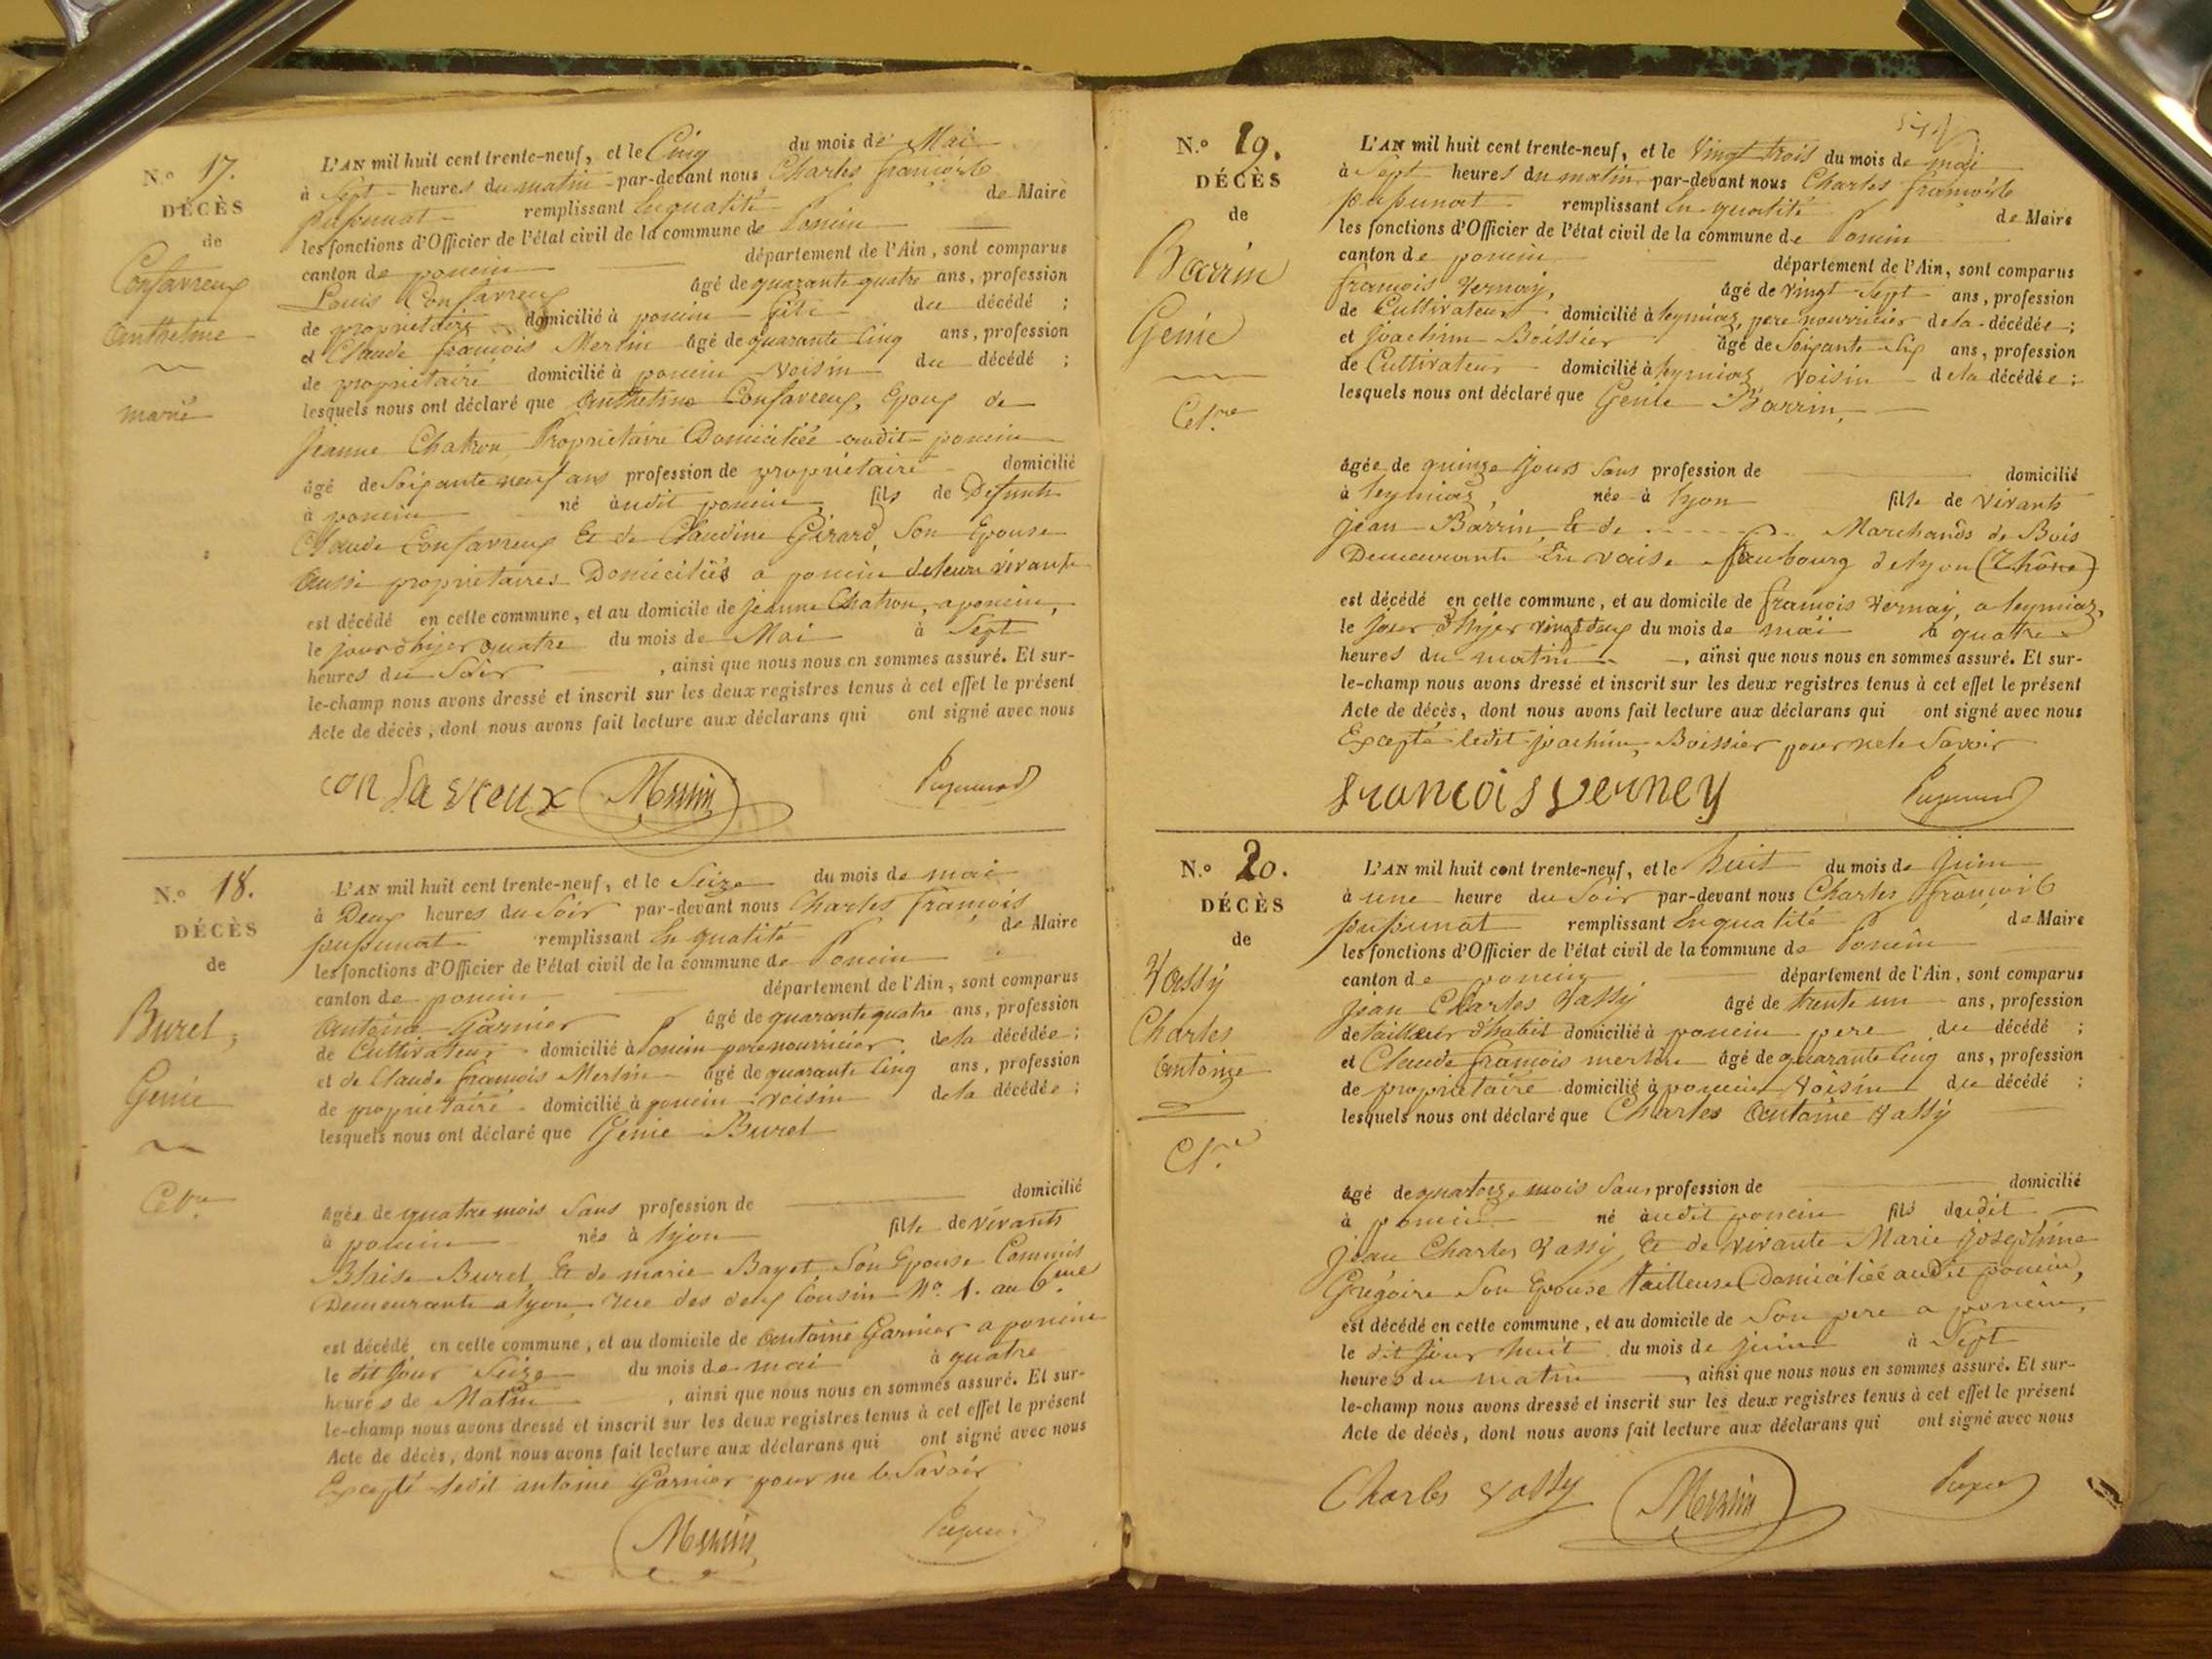 N.° 17.
DÉCÈS
de
Confavreux
Anthelme
marié
L'AN mil huit cent trente-neuf, et le Cinq du mois de Mai
à Sept heures du matin par-devant nous Charles françois
pupunat remplissant En qualité de Maire
les fonctions d'Officier de l'état civil de la commune de Poncin
canton de poncin département de l'Ain, sont comparus
Louis Confavreux âgé de quarante quatre ans, profession
de propriétaire domicilié à poncin fils du décédé ;
et Claude françois Merlin âgé de quarante Cinq ans, profession
de propriétaire domicilié à poncin voisin du décédé ;
lesquels nous ont déclaré que Anthelme Confavreux, Epoux de
Jeanne Chatron Propriétaire Domiciliée audit poncin
âgé de Soixante neuf ans profession de propriétaire domicilié
à poncin né audit poncin fils de Defunts
Claude Confavreux Et de Claudine Girard, Son Epouse
Aussi propriétaires Domiciliés a poncin de leurs vivants
est décédé en cette commune, et au domicile de jeanne Chatron, a poncin,
le jour d'hyer quatre du mois de Mai à Sept
heures du Soir , ainsi que nous nous en sommes assuré. Et sur-
le-champ nous avons dressé et inscrit sur les deux registres tenus à cet effet le présent
Acte de décès, dont nous avons fait lecture aux déclarans qui ont signé avec nous
Merlin
N.° 18.
DÉCÈS
de
Buret,
Genie
L'AN mil huit cent trente-neuf, et le Seize du mois de mai
à Deux heures du Soir par-devant nous Charles françois
pupunat remplissant En qualité de Maire
les fonctions d'Officier de l'état civil de la commune de Poncin
canton de poncin département de l'Ain, sont comparus
Antoine Garnier âgé de quarante quatre ans, profession
de Cultivateur domicilié à Poncin pere nourricier de la décédée ;
et de Claude françois Merlin âgé de quarante Cinq ans, profession
de propriétaire domicilié à poncin voisin de la décédée ;
lesquels nous ont déclaré que Genie Buret
âgée de quatre mois Sans profession de domicilié
à poncin née à Lyon fille de vivants
Blaise Buret, Et de marie Bayet, Son Epouse Commis
Demeurants a Lyon, rue des deux Cousin N°. 1. au 6.me
est décédé en cette commune, et au domicile de Antoine Garnier a poncin
le dit jour Seize du mois de mai à quatre
heures de Matin , ainsi que nous nous en sommes assuré. Et sur-
le-champ nous avons dressé et inscrit sur les deux registres tenus à cet effet le présent
Acte de décès, dont nous avons fait lecture aux déclarans qui ont signé avec nous
Excepté ledit antoine Garnier pour ne le Savoir
Merlin
N.° 19.
DÉCÈS
de
Barrin
Genie
L'AN mil huit cent trente-neuf, et le Vingt trois du mois de mai
à Sept heures du matin par-devant nous Charles françois
pupunat remplissant En qualité de Maire
les fonctions d'Officier de l'état civil de la commune de Poncin
canton de poncin département de l'Ain, sont comparus
françois Vernay, âgé de Vingt Sept ans, profession
de Cultivateur domicilié à leymiaz, pere nourricier de la décédée ;
et Joachim Boissier âgé de Soixante Six ans, profession
de Cultivateur domicilié à leymiaz voisin de la décédée ;
lesquels nous ont déclaré que Genie Barrin,
âgée de quinze jours Sans profession de domicilié
à leymiaz, née à Lyon fille de vivants
jean Barrin, Et de . . . . . . Marchands de Bois
Demeurants En vaise faubourg de Lyon (Rhône)
est décédé en cette commune, et au domicile de françois Vernay, a leymiaz,
le jour d'hyer vingt deux du mois de mai à quatre
heures du matin , ainsi que nous nous en sommes assuré. Et sur-
le-champ nous avons dressé et inscrit sur les deux registres tenus à cet effet le présent
Acte de décès, dont nous avons fait lecture aux déclarans qui ont signé avec nous
Excepté ledit joachim, Boissier pour ne le Savoir
francois verney
N.° 20.
DÉCÈS
de
Vassy
Charles
Antoine
L'AN mil huit cent trente-neuf, et le huit du mois de Juin
à une heure du Soir par-devant nous Charles françois
pupunat remplissant En qualité de Maire
les fonctions d'Officier de l'état civil de la commune de Poncin
canton de poncin département de l'Ain, sont comparus
Jean Charles Vassy âgé de trente un ans, profession
de tailleur d'habit domicilié à poncin pere du décédé ;
et Claude françois merlin âgé de quarante Cinq ans, profession
de propriétaire domicilié à poncin voisin du décédé ;
lesquels nous ont déclaré que Charles Antoine Vassy
âgé de quatorze mois Sans profession de domicilié
à poncin né audit poncin fils dudit
Jean Charles Vassy, Et de vivante Marie josephine
Grégoire Son Epouse tailleuse Domiciliée audit poncin,
est décédé en cette commune, et au domicile de Son pere a poncin,
le dit jour huit du mois de juin à Sept
heures du matin , ainsi que nous nous en sommes assuré. Et sur-
le-champ nous avons dressé et inscrit sur les deux registres tenus à cet effet le présent
Acte de décès, dont nous avons fait lecture aux déclarans qui ont signé avec nous
Charles Vassy Merlin